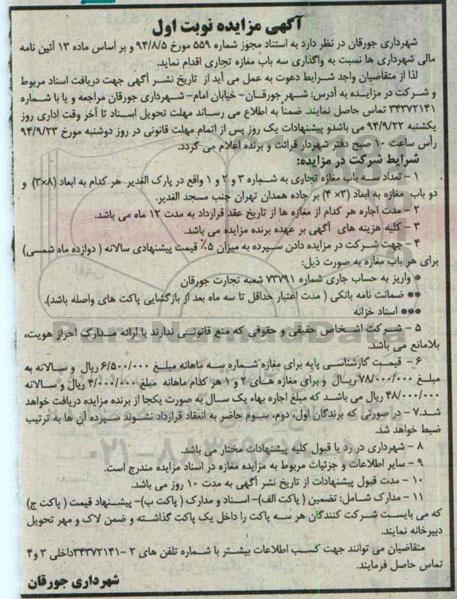 آگهی مزایده نوبت اول
شهرداری جورقان در نظر دارد به استناد مجوز شماره ۵۵۹ مورخ ۹۴/۸/۵ و بر اساس ماده ۱۳ آئین نامه
مالی شهرداری ها نسبت به واگذاری سه باب مغازه تجاری اقدام نماید.
لذا از متقاضیان واجد شرایط دعوت به عمل می آید از تاریخ نشر آگهی جهت دریافت اسناد مربوط
و شرکت در مزایده به آدرس: شهر جورقان- خیابان امام- شهرداری جورقان مراجعه و یا با شماره
۳۴۳۷۲۱۴۱ تماس حاصل نمایند. ضمناً به اطلاع می رساند مهلت تحویل اسناد تا آخر وقت اداری روز
یکشنبه ۹۴/۹/۲۲ می باشد و پیشنهادات یک روز پس از اتمام مهلت قانونی در روز دوشنبه مورخ ۹۴/۹/۲۳
رأس ساعت ۱۰ صبح دفتر شهردار قرائت و برنده اعلام می گردد.
شرایط شرکت در مزایده:
۱ – تعداد سه باب مغازه تجاری به شماره ۳ و ۲ و ۱ واقع در پارک الغدیر هر کدام به ابعاد (۸×۳) و
دو باب مغازه به ابعاد (۳× ۴) بر جاده همدان تهران جنب مسجد الغدیر.
۲ – مدت اجاره هر کدام از مغازه ها از تاریخ عقد قرارداد به مدت ۱۲ ماه می باشد.
۳ – کلیه هزینه های آگهی بر عهده برنده مزایده می باشد.
۴ – جهت شرکت در مزایده دادن سپرده به میزان ۵٪ قیمت پیشنهادی سالانه ( دوازده ماه شمسی)
برای هر باب مغازه به صورت ذیل:
* واریز به حساب جاری شماره ۷۳۷۹۱ شعبه تجارت جورقان
** ضمانت نامه بانکی ( مدت اعتبار حداقل تا سه ماه بعد از بازگشایی پاکت های واصله باشد).
*** اسناد خزانه
۵ – شرکت اشخاص حقیقی و حقوقی که منع قانونی ندارند با ارائه مدارک احراز هویت،
بلامانع می باشد.
۶ – قیمت کارشناسی پایه برای مغازه شماره سه ماهانه مبلغ ۶/۵۰۰/۰۰۰ ریال و سالانه به
مبلغ ۷۸/۰۰۰/۰۰۰ ریال و برای مغازه های ۲ و ۱ هر کدام ماهانه مبلغ ۴/۰۰۰/۰۰۰ ریال و سالانه
۴۸/۰۰۰/۰۰۰ ریال می باشد که مبلغ اجاره بهاء یک سال به صورت یکجا از برنده مزایده دریافت خواهد
شد.۷ – در صورتی که برندگان اول، دوم، سوم حاضر به انعقاد قرارداد نشوند سپرده آن ها به ترتیب
ضبط خواهد شد.
۸ – شهرداری در رد یا قبول کلیه پیشنهادات مختار می باشد.
۹ – سایر اطلاعات و جزئیات مربوط به مزایده مغازه در اسناد مزایده مندرج است.
۱۰ – مدت قبول پیشنهادات از تاریخ نشر آگهی به مدت ۱۰ روز می باشد.
۱۱ – مدارک شامل: تضمین ( پاکت الف)- اسناد و مدارک ( پاکت ب)- پیشنهاد قیمت ( پاکت ج)
که می بایست شرکت کنندگان هر سه پاکت را داخل یک پاکت گذاشته و ضمن لاک و مهر تحویل
دبیرخانه نمایند.
متقاضیان می توانند جهت کسب اطلاعات بیشتر با شماره تلفن های ۲ –۳۴۳۷۲۱۴۱داخلی ۳ و۴
تماس حاصل فرمایند.
شهرداری جورقان